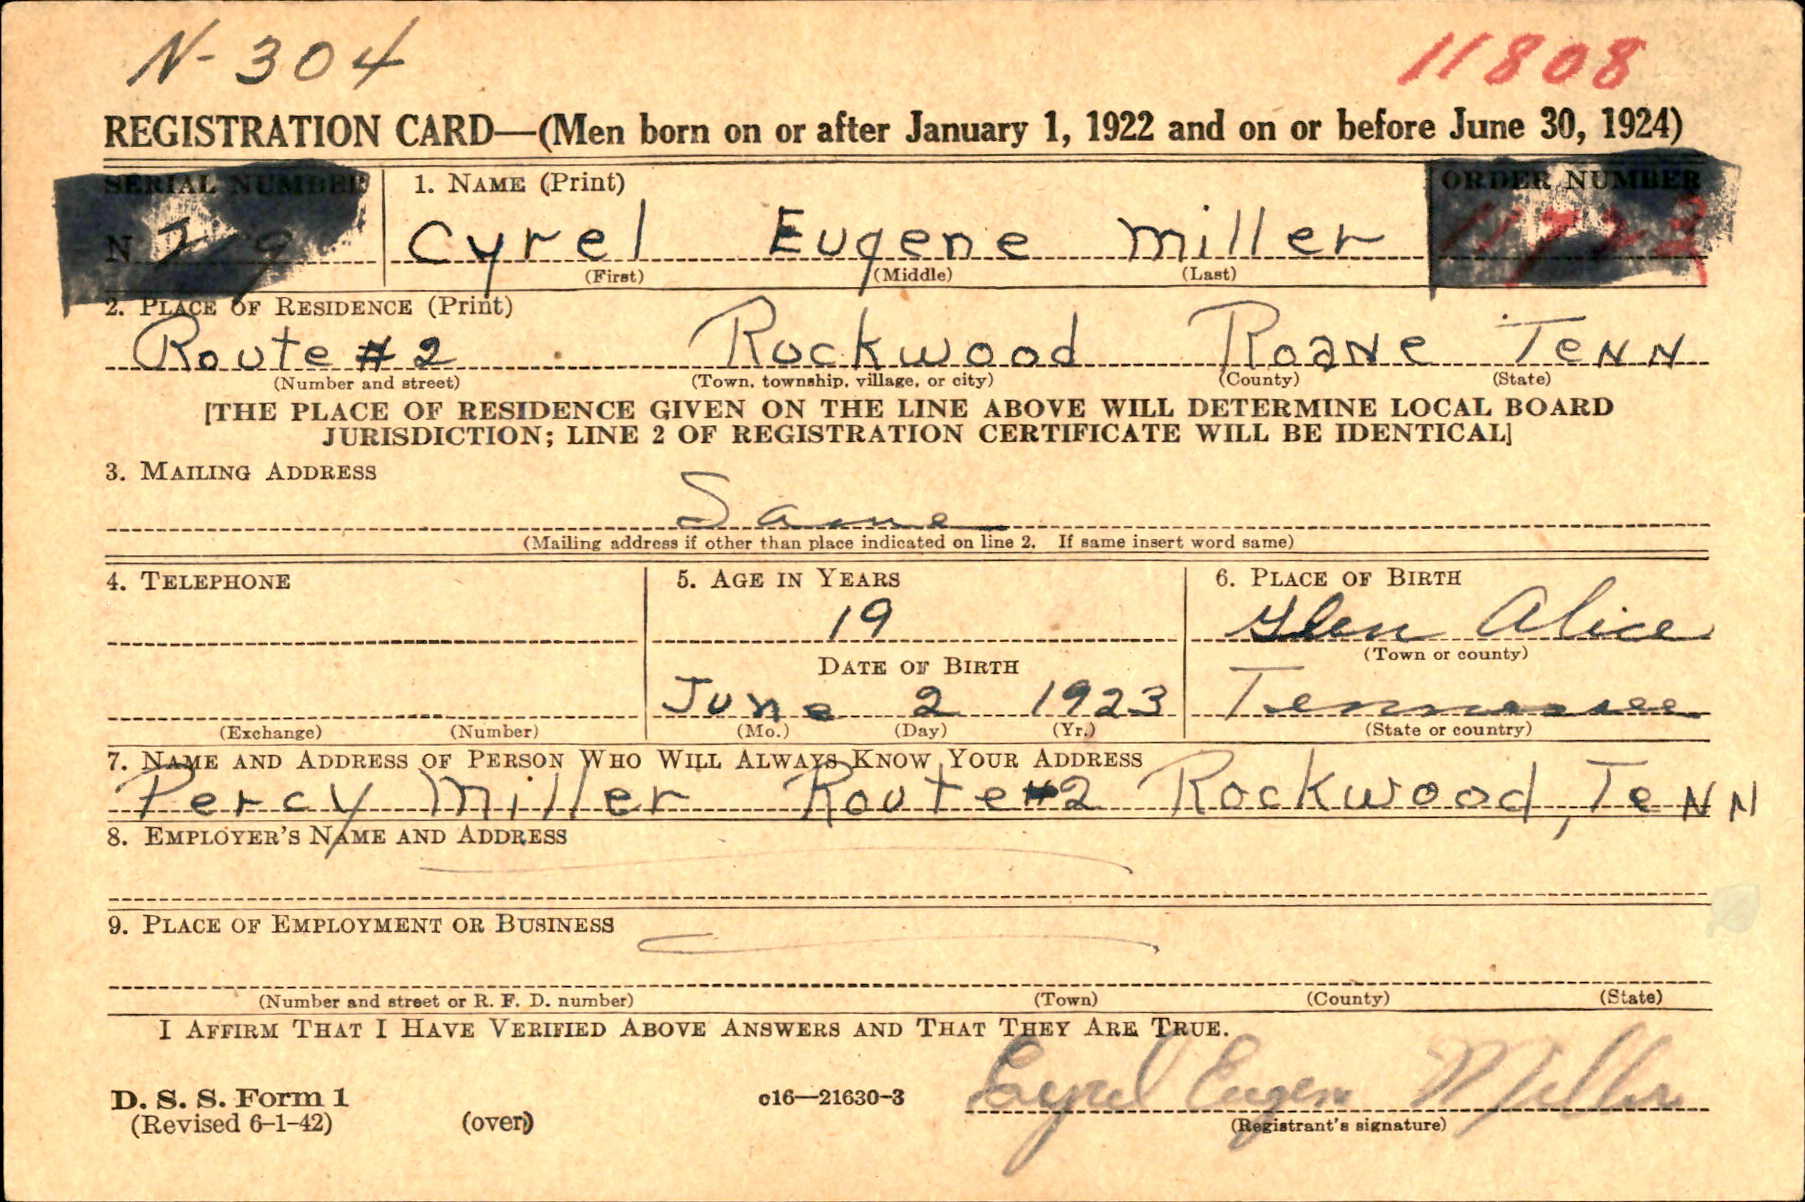 N-304 11808
REGISTRATION CARD—(Men born on or after January 1, 1922 and on or before June 30, 1924)
SERIAL NUMBER 1. NAME (Print) ORDER NUMBER
N Cyrel Eugene Miller
(First) (Middle) (Last)
2. PLACE OF RESIDENCE (Print)
Route #2 Rockwood Roane TeNN
(Number and street) (Town, township, village, or city) (County) (State)
[THE PLACE OF RESIDENCE GIVEN ON THE LINE ABOVE WILL DETERMINE LOCAL BOARD
JURISDICTION; LINE 2 OF REGISTRATION CERTIFICATE WILL BE IDENTICAL]
3. MAILING ADDRESS
Same
(Mailing address if other than place indicated on line 2. If same insert word same)
4. TELEPHONE 5. AGE IN YEARS 6. PLACE OF BIRTH
19 Glen Alice
(Town or county)
DATE OF BIRTH
June 2 1923 Tennessee
(Exchange) (Number) (Mo.) (Day) (Yr.) (State or country)
7. NAME AND ADDRESS OF PERSON WHO WILL ALWAYS KNOW YOUR ADDRESS
Percy Miller Route #2 Rockwood, TeNN
8. EMPLOYER'S NAME AND ADDRESS
9. PLACE OF EMPLOYMENT OR BUSINESS
(Number and street or R. F. D. number) (Town) (County) (State)
I AFFIRM THAT I HAVE VERIFIED ABOVE ANSWERS AND THAT THEY ARE TRUE.
D. S. S. Form 1 c16—21630-3 Cyrel Eugene Miller
(Revised 6-1-42) (over) (Registrant's signature)